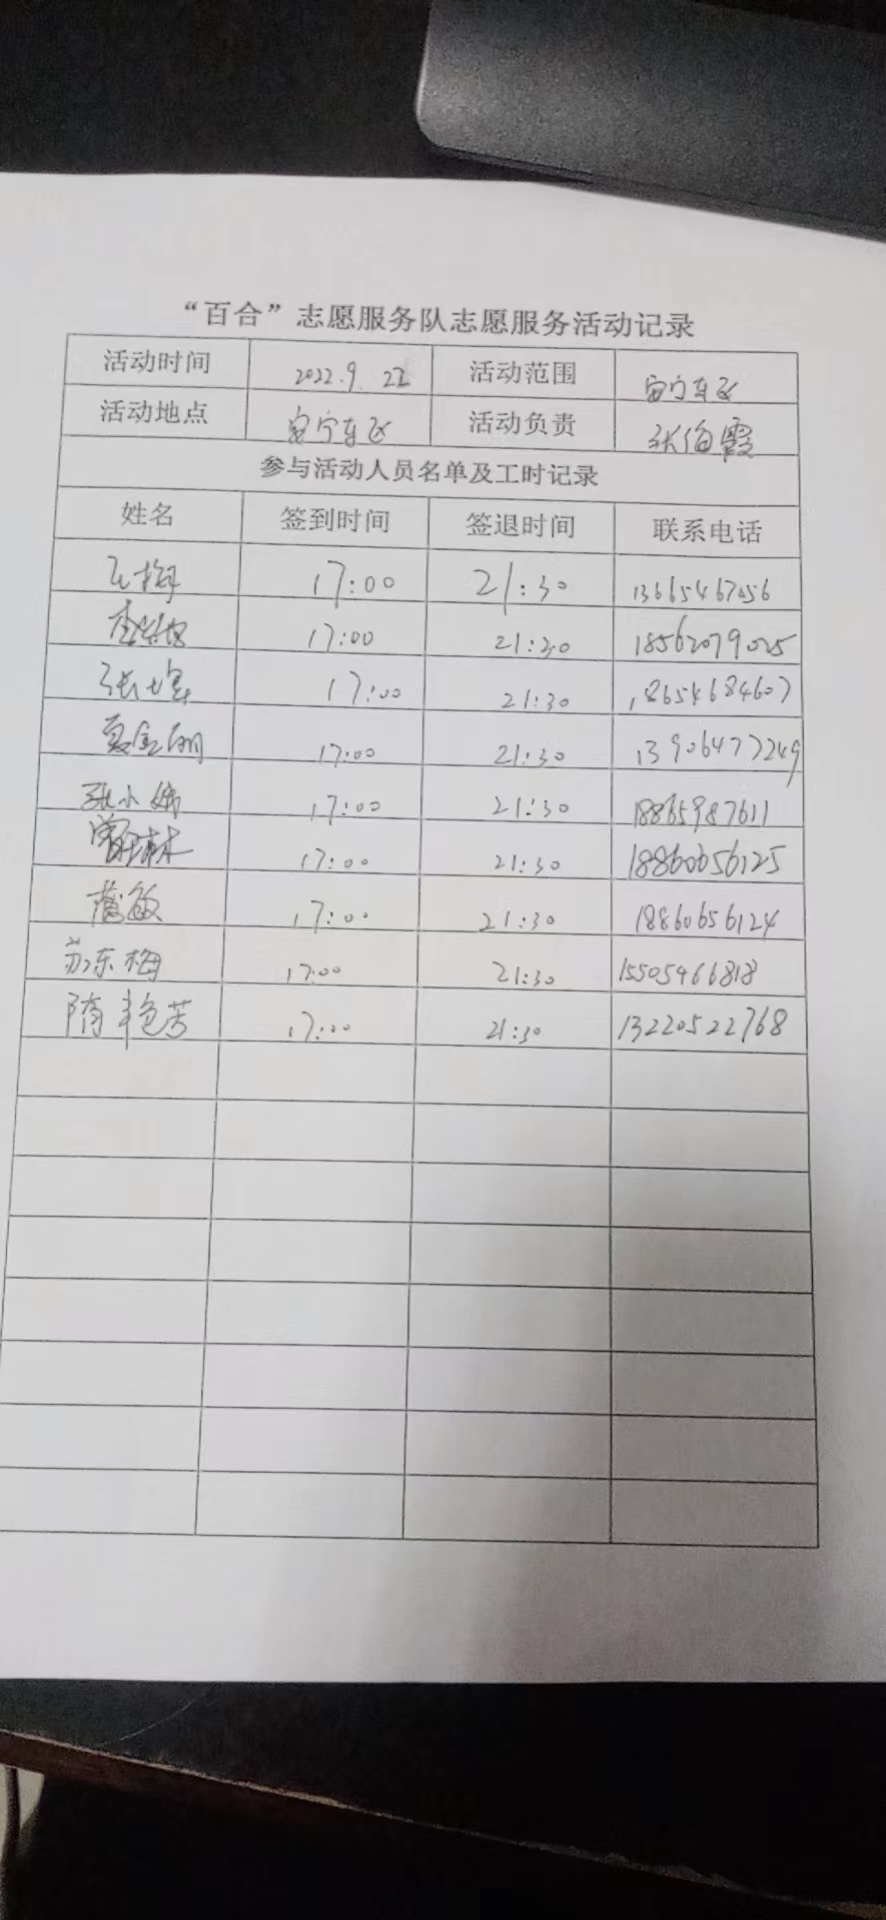 “百合”志愿服务队志愿服务活动记录
活动时间 2022.9.22 活动范围
活动地点 活动负责 张伯霞
参与活动人员名单及工时记录
姓名 签到时间 签退时间 联系电话
17:00 21:30 13665467056
17:00 21:30 18562079025
17:00 21:30 18654684607
17:00 21:30 13906477249
张小娥 17:00 21:30 18865987611
17:00 21:30 18860656125
17:00 21:30 18860656124
苏东梅 17:00 21:30 15505466818
隋艳芳 17:00 21:30 13220522768